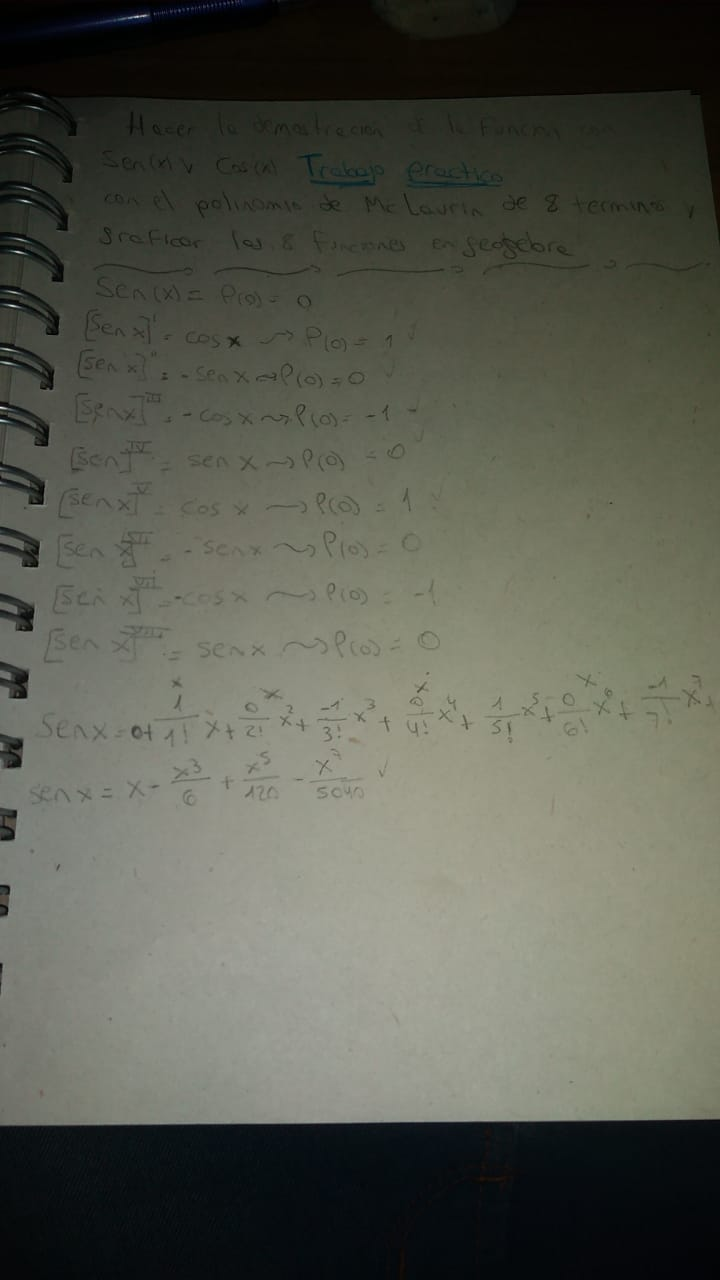 Hacer la demostracion de la funcion con
Sen(x) y Cos(x) Trabajo practico
con el polinomio de McLaurin de 8 termino y
graficar las 8 funciones en geogebra
Sen(x) = P(0) = 0
[Sen x]' = cos x → P(0) = 1 ✓
[Sen x]'' = - sen x → P(0) = 0 ✓
[Senx]^III = - cos x → P(0) = -1
[sen]^IV = sen x → P(0) = 0 ✓
[sen x]^V = cos x → P(0) = 1 ✓
[sen x]^VI = - senx → P(0) = 0
[sen x]^VII = -cosx → P(0) = -1
[sen x]^VIII = senx → P(0) = 0
Senx = 0 + 1/1! x + 0/2! x² + -1/3! x³ + 0/4! x⁴ + 1/5! x⁵ + 0/6! x⁶ + -1/7! x⁷ +
senx = x - x³/6 + x⁵/120 - x⁷/5040 ✓